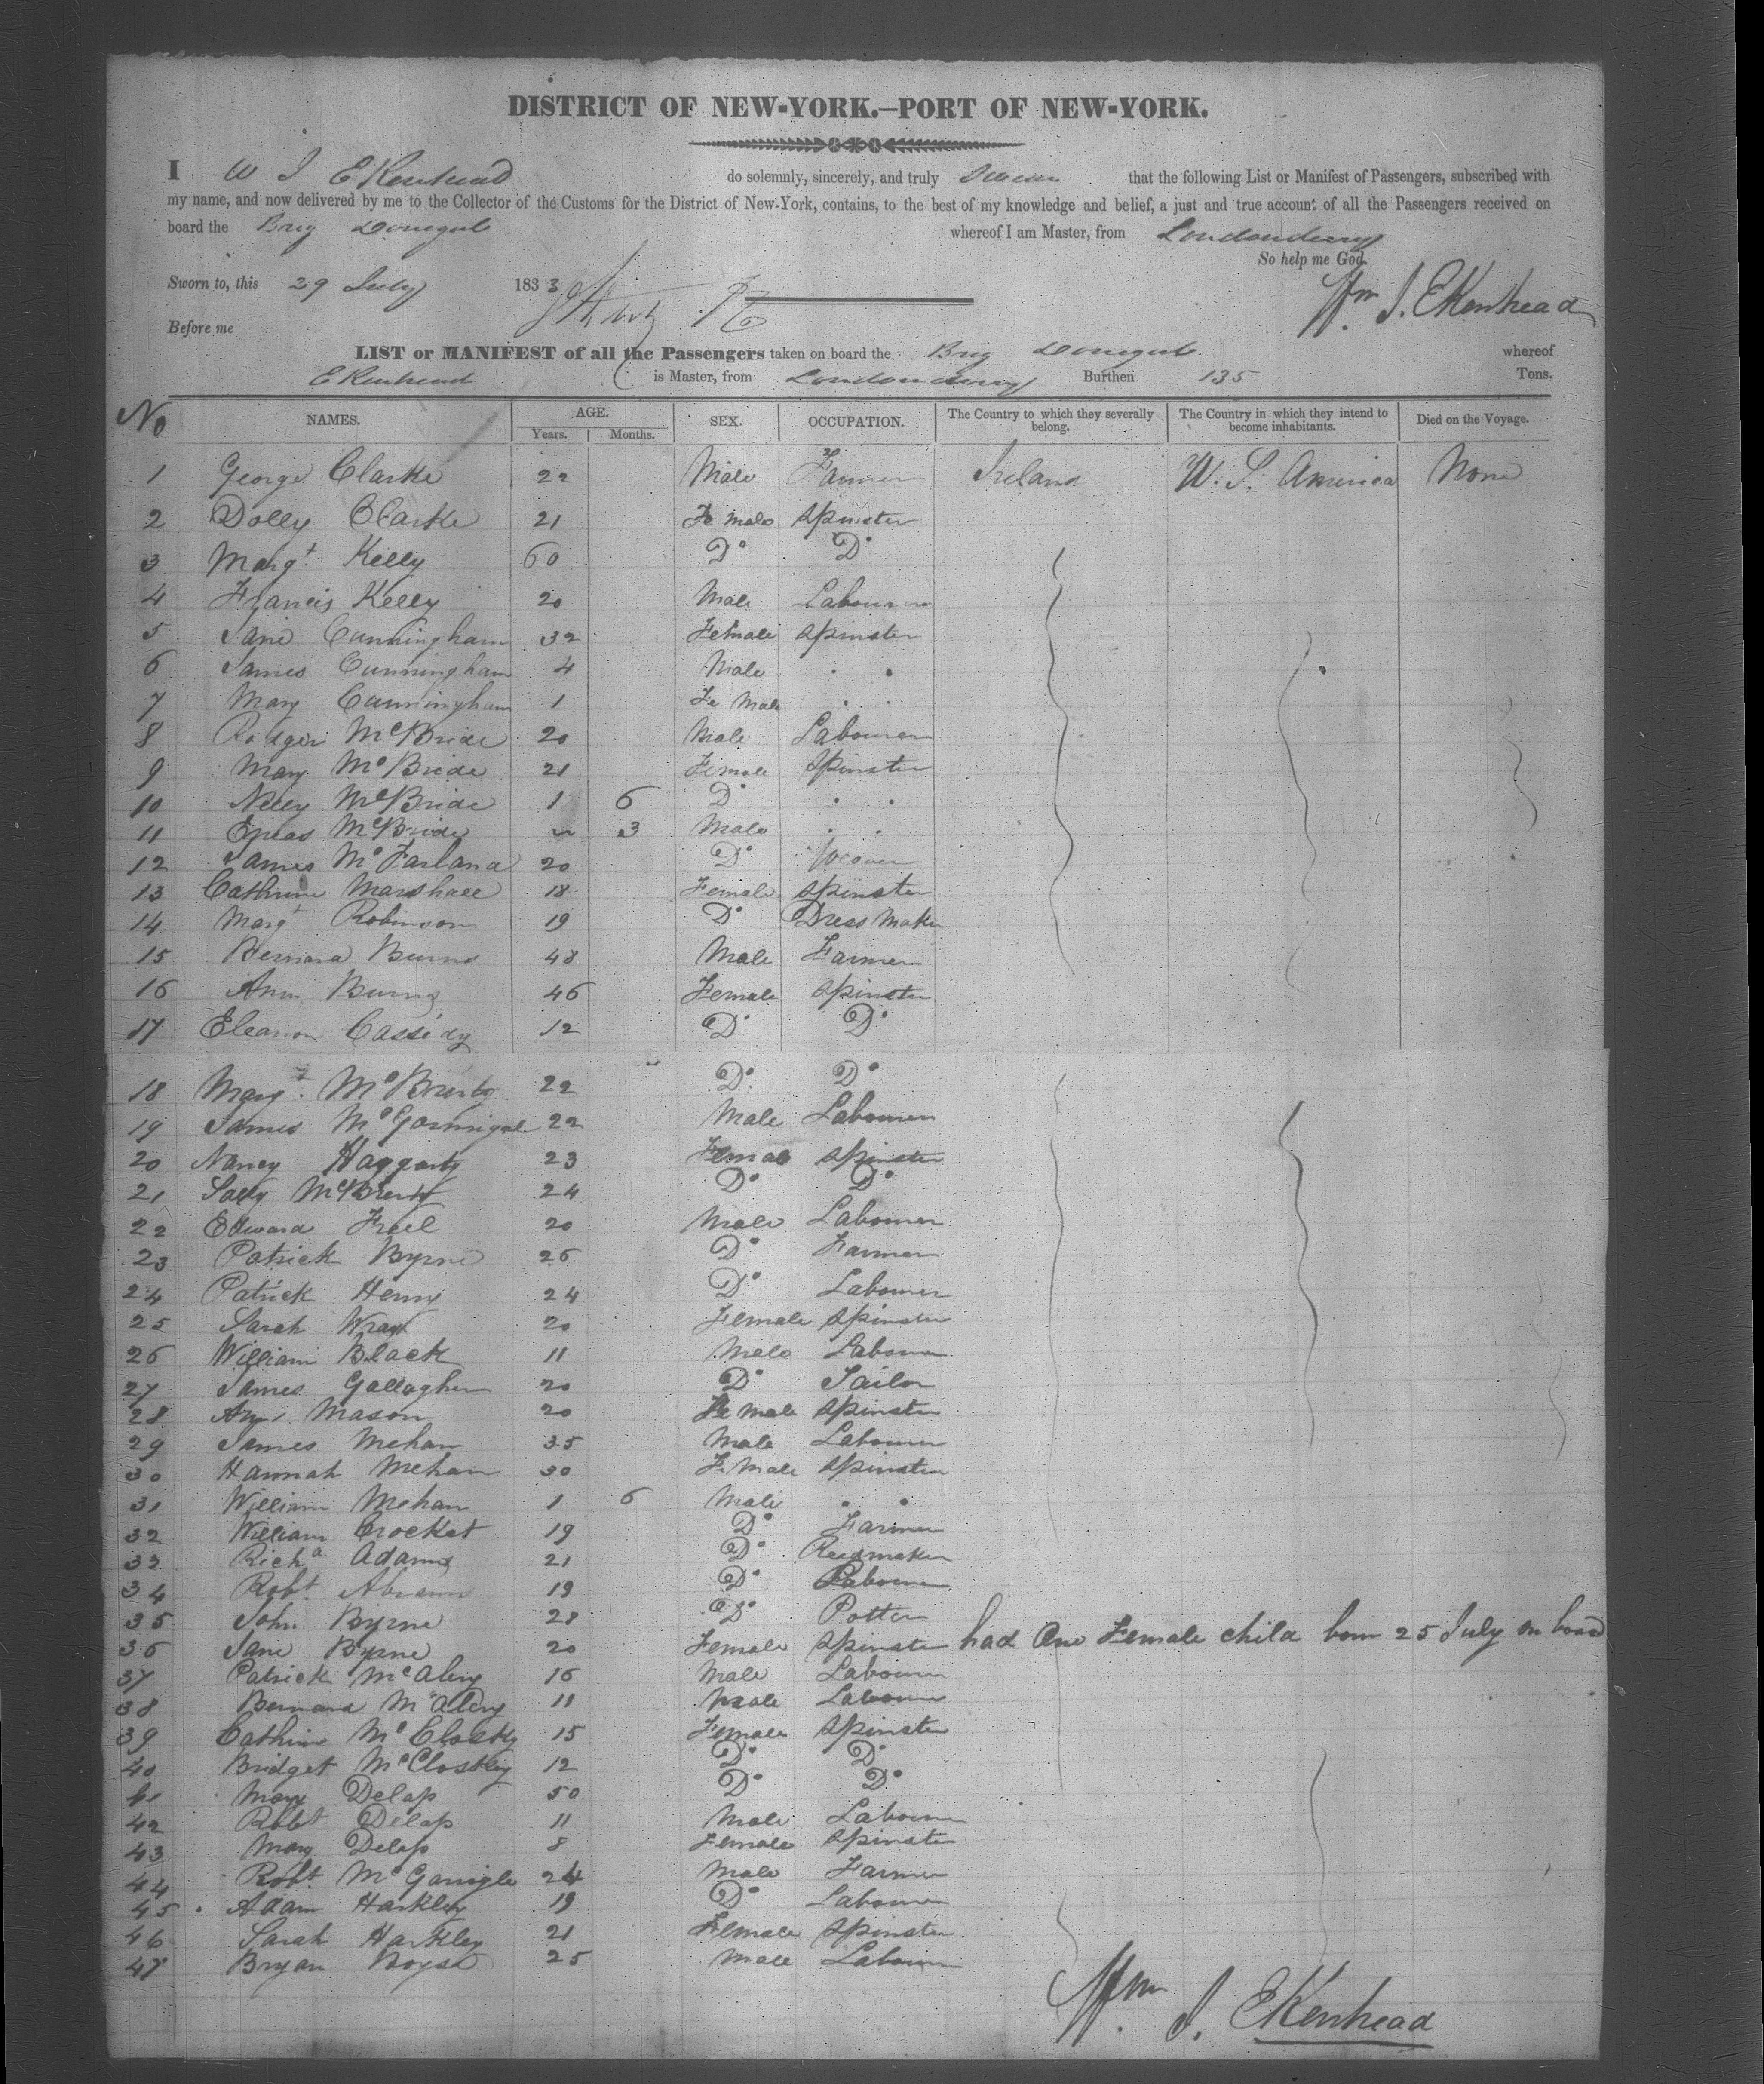 DISTRICT OF NEW-YORK.—PORT OF NEW-YORK.
I W J EKenhead do solemnly, sincerely, and truly Swear that the following List or Manifest of Passengers, subscribed with
my name, and now delivered by me to the Collector of the Customs for the District of New-York, contains, to the best of my knowledge and belief, a just and true account of all the Passengers received on
board the Brig Donegal whereof I am Master, from Londonderry
So help me God.
Sworn to, this 29 July 1833
Wm J. EKenhead
Before me
LIST or MANIFEST of all the Passengers taken on board the Brig Donegal whereof
EKenhead is Master, from Londonderry Burthen 135 Tons.
No NAMES. AGE. Years. Months. SEX. OCCUPATION. The Country to which they severally belong. The Country in which they intend to become inhabitants. Died on the Voyage.
1 George Clarke 22 Male Farmer Ireland U. S. America None
2 Dolly Clarke 21 Female Spinster
3 Margt Kelly 60 Do Do
4 Francis Kelly 20 Male Labourer
5 Jane Cunningham 32 Female Spinster
6 James Cunningham 4 Male " "
7 Mary Cunningham 1 Female " "
8 Rodger McBride 20 Male Labourer
9 Mary McBride 21 Female Spinster
10 Nelly McBride 1 6 Do " "
11 McBride " 3 Male " "
12 James McFarland 20 Do Weaver
13 Cathrine Marshall 18 Female Spinster
14 Margt Robinson 19 Do Dress Maker
15 Bernard Burns 48 Male Farmer
16 Ann Burns 46 Female Spinster
17 Eleanor Cassidy 12 Do Do
18 Margt 22 Do Do
19 James McGonnigal 22 Male Labourer
20 Nancy Haggarty 23 Female Spinster
21 Sally 24 Do Do
22 Edward Freel 20 Male Labourer
23 Patrick Byrne 26 Do Farmer
24 Patrick Henry 24 Do Labourer
25 Sarah Wray 20 Female Spinster
26 William Black 11 Male Labourer
27 James Gallagher 20 Do Tailor
28 Mason 20 Female Spinster
29 James Mehan 35 Male Labourer
30 Hannah Mehan 30 Female Spinster
31 William Mehan 1 6 Male " "
32 William Crocket 19 Do Farmer
33 Richd Adams 21 Do Reedmaker
34 Robt Abram 19 Do Labourer
35 John Byrne 28 Do Potter
36 Jane Byrne 20 Female Spinster had One Female child born 25 July on board
37 Patrick McAleny 16 Male Labourer
38 Bernard McAleny 11 Male Labourer
39 Cathrine McClosky 15 Female Spinster
40 Bridget McCloskey 12 Do Do
41 Mary Delap 50 Do Do
42 Robt Delap 11 Male Labourer
43 Mary Delap 8 Female Spinster
44 Robt McGonigle 24 Male Farmer
45 Adam Harkley 19 Do Labourer
46 Sarah Harkley 21 Female Spinster
47 Bryan 25 Male Labourer
Wm J. EKenhead